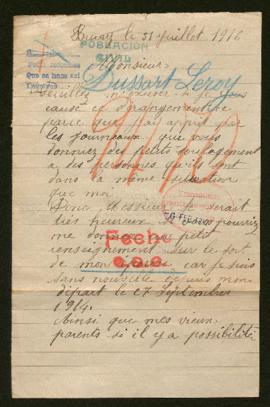 Bruay le 31 juillet 1916
POBLACIÓN
CIVIL
Monsieur
Que se hace así
Dussart Leroy
Veuillez m'excuser si je vous
cause ce dérangement
parce que j'ai appris
les journeaux que vous
donniez des petits soulagement
à des personnes qu'ils ont
dans la même situation
que moi
Donc Monsieur je serait
très heureux si vous pourriez
me donner un petit
renseignement sur le sort
de mon car je suis
sans nouvelle depuis mon
départ le 27 Septembre
1914.
Ainsi que mes vieux
parents si il y a possibilité
Fecha